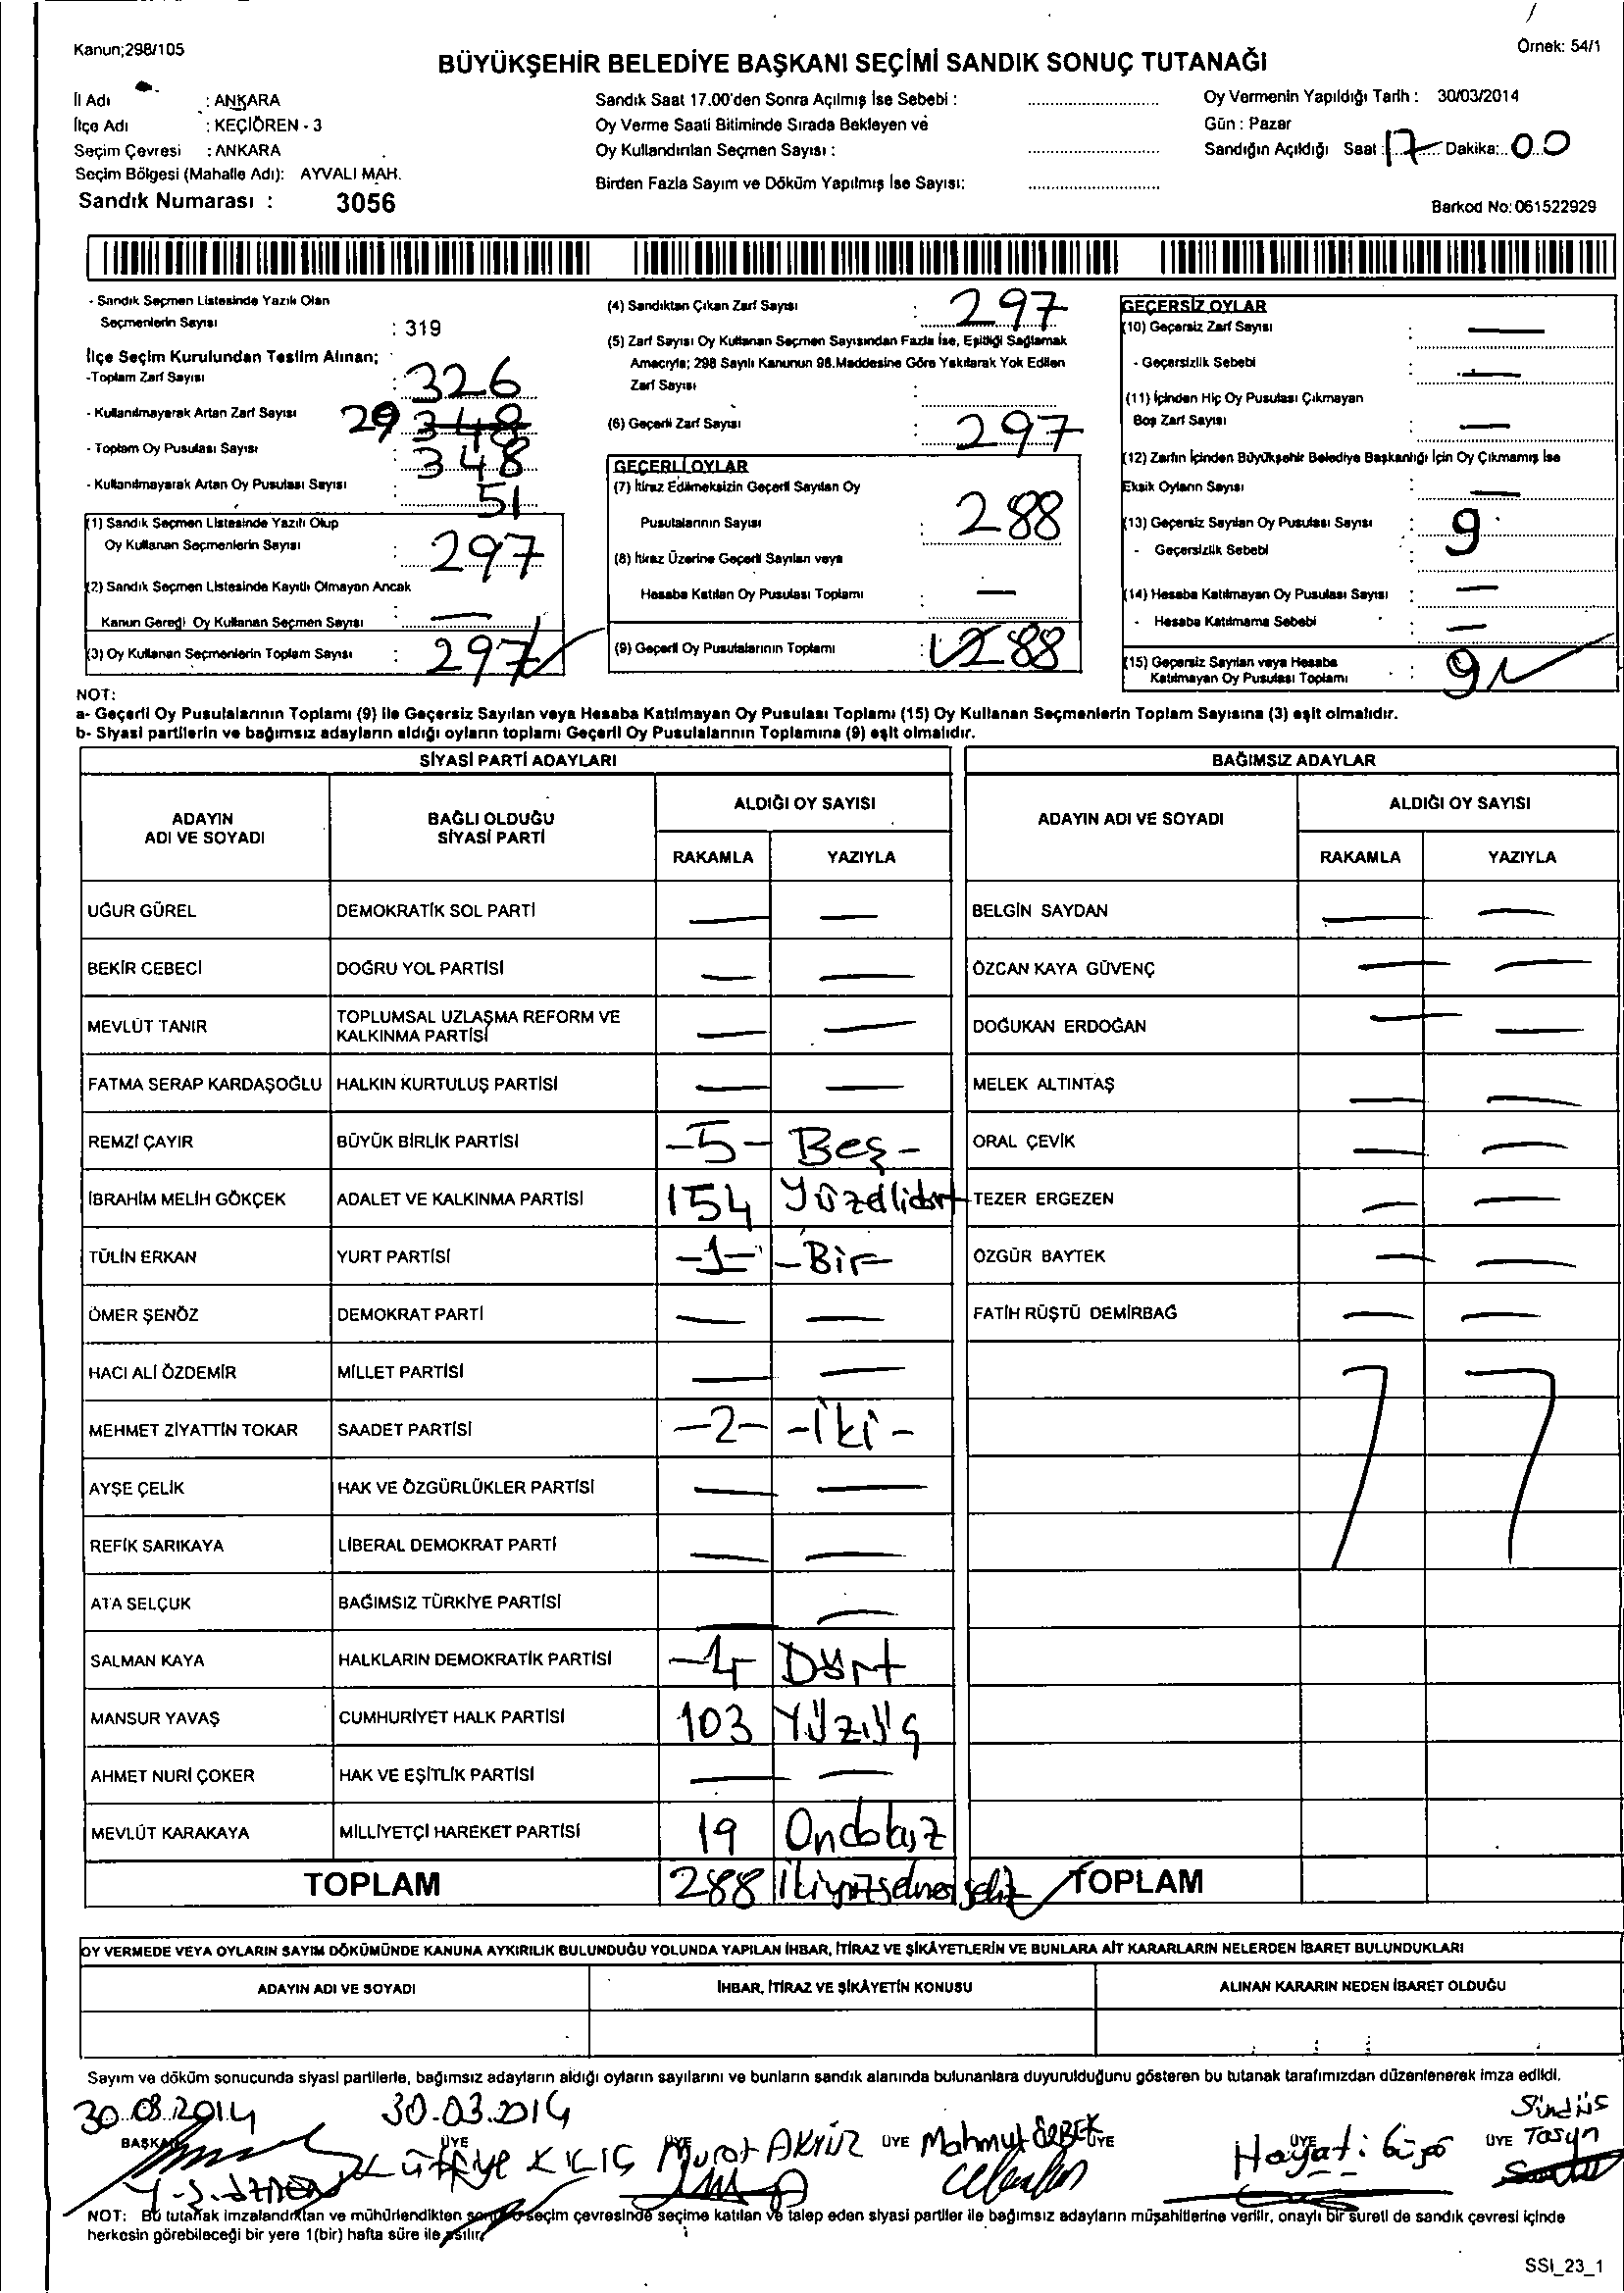 Kanun;298/105
Örnek: 54/1
BÜYÜKŞEHİR BELEDİYE BAŞKANI SEÇİMİ SANDIK SONUÇ TUTANAĞI
İl Adı : ANKARA
İlçe Adı : KEÇİÖREN - 3
Seçim Çevresi : ANKARA
Seçim Bölgesi (Mahalle Adı): AYVALI MAH.
Sandık Numarası : 3056
Sandık Saat 17.00'den Sonra Açılmış İse Sebebi :
Oy Verme Saati Bitiminde Sırada Bekleyen ve
Oy Kullandırılan Seçmen Sayısı :
Birden Fazla Sayım ve Döküm Yapılmış İse Sayısı:
Oy Vermenin Yapıldığı Tarih : 30/03/2014
Gün : Pazar
Sandığın Açıldığı Saat : 17 Dakika: 00
Barkod No: 061522929
- Sandık Seçmen Listesinde Yazılı Olan
Seçmenlerin Sayısı : 319
İlçe Seçim Kurulundan Teslim Alınan;
-Toplam Zarf Sayısı : 326
- Kullanılmayarak Artan Zarf Sayısı 29 348
- Toplam Oy Pusulası Sayısı : 348
- Kullanılmayarak Artan Oy Pusulası Sayısı : 51
(1) Sandık Seçmen Listesinde Yazılı Olup
Oy Kullanan Seçmenlerin Sayısı : 297
(2) Sandık Seçmen Listesinde Kayıtlı Olmayan Ancak
Kanun Gereği Oy Kullanan Seçmen Sayısı : —
(3) Oy Kullanan Seçmenlerin Toplam Sayısı : 297
(4) Sandıktan Çıkan Zarf Sayısı : 297
(5) Zarf Sayısı Oy Kullanan Seçmen Sayısından Fazla İse, Eşitliği Sağlamak
Amacıyla; 298 Sayılı Kanunun 98.Maddesine Göre Yakılarak Yok Edilen
Zarf Sayısı :
(6) Geçerli Zarf Sayısı : 297
GEÇERLİ OYLAR
(7) İtiraz Edilmeksizin Geçerli Sayılan Oy
Pusulalarının Sayısı : 288
(8) İtiraz Üzerine Geçerli Sayılan veya
Hesaba Katılan Oy Pusulası Toplamı : —
(9) Geçerli Oy Pusulalarının Toplamı : 288
GEÇERSİZ OYLAR
(10) Geçersiz Zarf Sayısı : —
- Geçersizlik Sebebi : —
(11) İçinden Hiç Oy Pusulası Çıkmayan
Boş Zarf Sayısı : —
(12) Zarfın İçinden Büyükşehir Belediye Başkanlığı İçin Oy Çıkmamış İse
Eksik Oyların Sayısı : —
(13) Geçersiz Sayılan Oy Pusulası Sayısı : 9
- Geçersizlik Sebebi :
(14) Hesaba Katılmayan Oy Pusulası Sayısı : —
- Hesaba Katılmama Sebebi : —
(15) Geçersiz Sayılan veya Hesaba
Katılmayan Oy Pusulası Toplamı : 9
NOT:
a- Geçerli Oy Pusulalarının Toplamı (9) ile Geçersiz Sayılan veya Hesaba Katılmayan Oy Pusulası Toplamı (15) Oy Kullanan Seçmenlerin Toplam Sayısına (3) eşit olmalıdır.
b- Siyasi partilerin ve bağımsız adayların aldığı oyların toplamı Geçerli Oy Pusulalarının Toplamına (9) eşit olmalıdır.
SİYASİ PARTİ ADAYLARI
ADAYIN ADI VE SOYADI BAĞLI OLDUĞU SİYASİ PARTİ ALDIĞI OY SAYISI
RAKAMLA YAZIYLA
UĞUR GÜREL DEMOKRATİK SOL PARTİ — —
BEKİR CEBECİ DOĞRU YOL PARTİSİ — —
MEVLÜT TANIR TOPLUMSAL UZLAŞMA REFORM VE KALKINMA PARTİSİ — —
FATMA SERAP KARDAŞOĞLU HALKIN KURTULUŞ PARTİSİ — —
REMZİ ÇAYIR BÜYÜK BİRLİK PARTİSİ -5- Beş-
İBRAHİM MELİH GÖKÇEK ADALET VE KALKINMA PARTİSİ 154 Yüzellidört
TÜLİN ERKAN YURT PARTİSİ -1- -Bir-
ÖMER ŞENÖZ DEMOKRAT PARTİ — —
HACI ALİ ÖZDEMİR MİLLET PARTİSİ — —
MEHMET ZİYATTİN TOKAR SAADET PARTİSİ -2- -iki-
AYŞE ÇELİK HAK VE ÖZGÜRLÜKLER PARTİSİ — —
REFİK SARIKAYA LİBERAL DEMOKRAT PARTİ — —
ATA SELÇUK BAĞIMSIZ TÜRKİYE PARTİSİ — —
SALMAN KAYA HALKLARIN DEMOKRATİK PARTİSİ -4 Dört
MANSUR YAVAŞ CUMHURİYET HALK PARTİSİ 103 Yüzüç
AHMET NURİ ÇOKER HAK VE EŞİTLİK PARTİSİ — —
MEVLÜT KARAKAYA MİLLİYETÇİ HAREKET PARTİSİ 19 Ondokuz
TOPLAM 288 ikiyüzseksensekiz
BAĞIMSIZ ADAYLAR
ADAYIN ADI VE SOYADI ALDIĞI OY SAYISI
RAKAMLA YAZIYLA
BELGİN SAYDAN — —
ÖZCAN KAYA GÜVENÇ — —
DOĞUKAN ERDOĞAN — —
MELEK ALTINTAŞ — —
ORAL ÇEVİK — —
TEZER ERGEZEN — —
ÖZGÜR BAYTEK — —
FATİH RÜŞTÜ DEMİRBAĞ — —
TOPLAM
OY VERMEDE VEYA OYLARIN SAYIM DÖKÜMÜNDE KANUNA AYKIRILIK BULUNDUĞU YOLUNDA YAPILAN İHBAR, İTİRAZ VE ŞİKÂYETLERİN VE BUNLARA AİT KARARLARIN NELERDEN İBARET BULUNDUKLARI
ADAYIN ADI VE SOYADI İHBAR, İTİRAZ VE ŞİKÂYETİN KONUSU ALINAN KARARIN NEDEN İBARET OLDUĞU
Sayım ve döküm sonucunda siyasi partilerle, bağımsız adayların aldığı oyların sayılarını ve bunların sandık alanında bulunanlara duyurulduğunu gösteren bu tutanak tarafımızdan düzenlenerek imza edildi.
30.03.2014 30.03.2014
BAŞKAN ÜYE ÜYE ÜYE ÜYE ÜYE ÜYE
KILIÇ Murat Mahmut Hayati
NOT: Bu tutanak imzalandıktan ve mühürlendikten sonra seçim çevresinde seçime katılan ve talep eden siyasi partiler ile bağımsız adayların müşahitlerine verilir, onaylı bir sureti de sandık çevresi içinde
herkesin görebileceği bir yere 1(bir) hafta süre ile asılır.
SSI_23_1